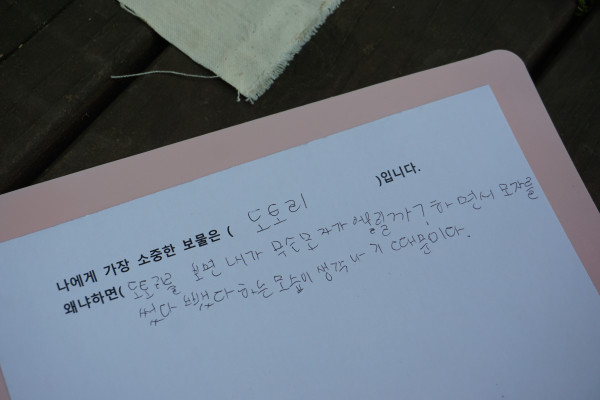 나에게 가장 소중한 보물은 ( 도토리 )입니다.
왜냐하면( 도토리를 보면 내가 무슨 모자가 어울릴까? 하면서 모자를
썼다 뺐다 하는 모습이 생각나기 때문이다.